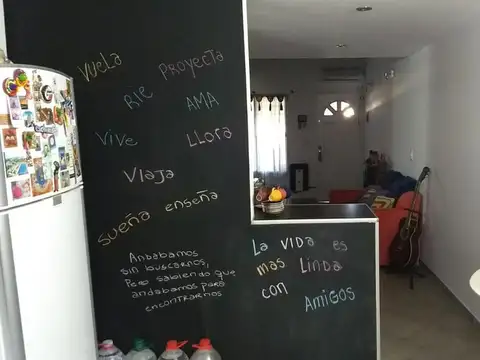 VUELA
RIE PROYECTA
AMA
VIVE LLORA
VIAJA
SUEÑA ENSEÑA
Andabamos
sin buscarnos,
Pero sabiendo que
andabamos para
encontrarnos
La VIDA es
mas Linda
con
AmiGOS